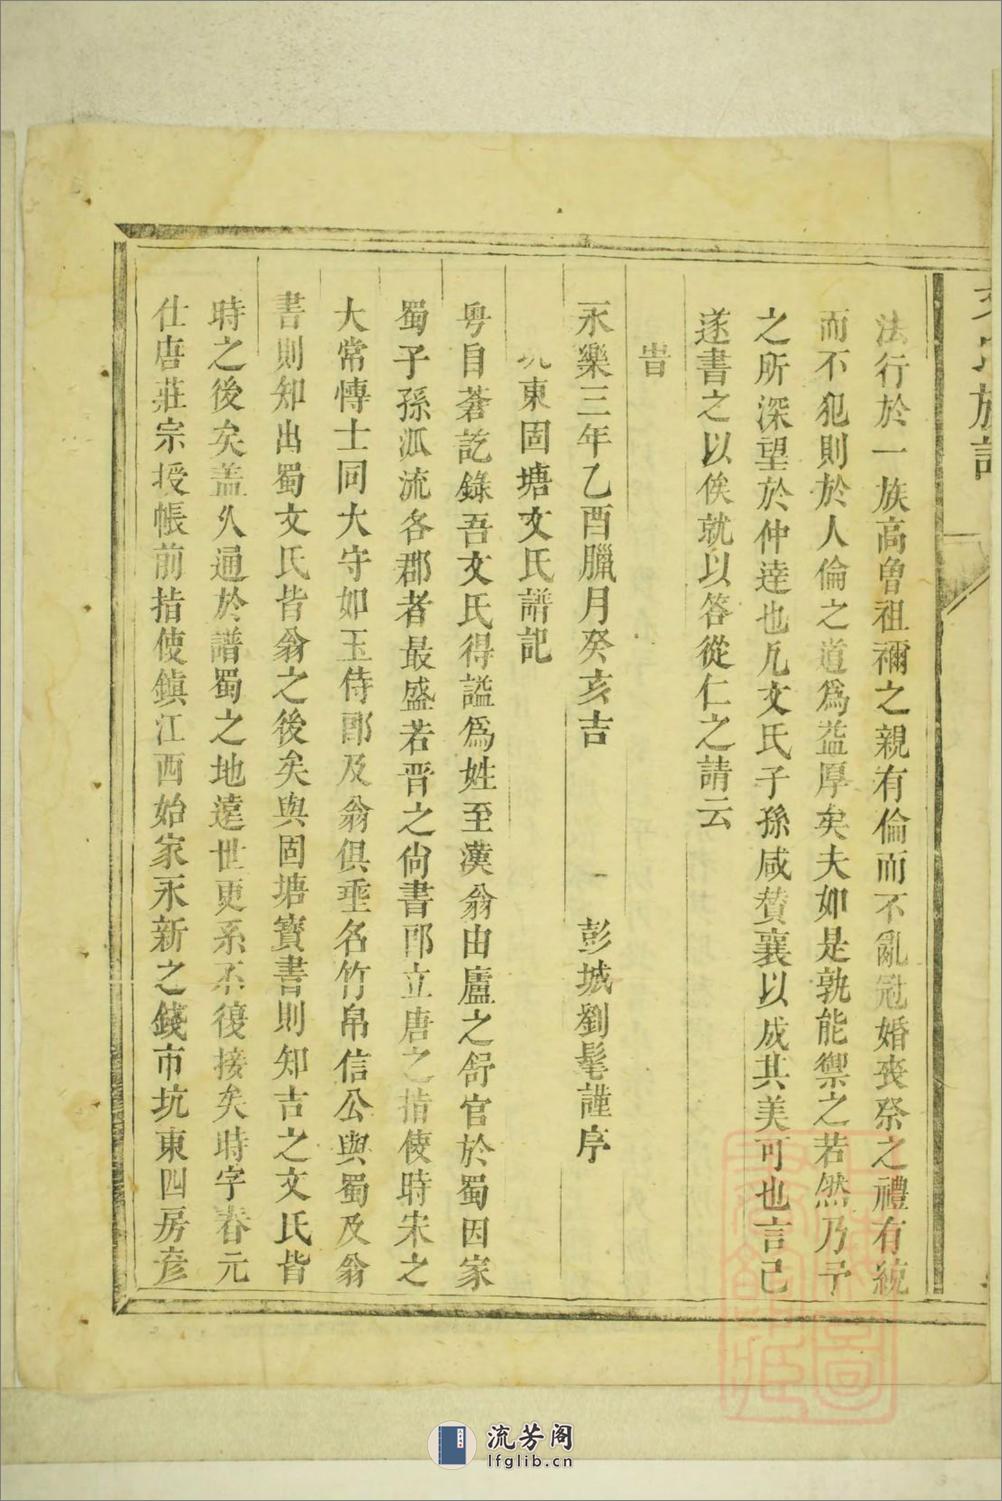 文氏族譜
法行於一族高曾祖禰之親有倫而不亂冠婚喪祭之禮有統
而不犯則於人倫之道為益厚矣夫如是孰能禦之若然乃予
之所深望於仲達也凡文氏子孫咸賛襄以成其美可也言已
遂書之以俟就以答從仁之請云
旹
永樂三年乙酉臘月癸亥吉 彭城劉髦謹序
坑東固塘文氏譜記
粤自蒼訖錄吾文氏得謚為姓至漢翁由廬之舒官於蜀因家
蜀子孫派流各郡者最盛若晋之尙書郎立唐之指使時宋之
大常博士同大守如玉侍郎及翁俱垂名竹帛信公與蜀及翁
書則知出蜀文氏皆翁之後矣與固塘寳書則知吉之文氏皆
時之後矣盖乆通於譜蜀之地遠世更系丕復接矣時字春元
仕唐莊宗授帳前指使鎮江西始家永新之錢市坑東四房彦
流芳阁
lfglib.cn